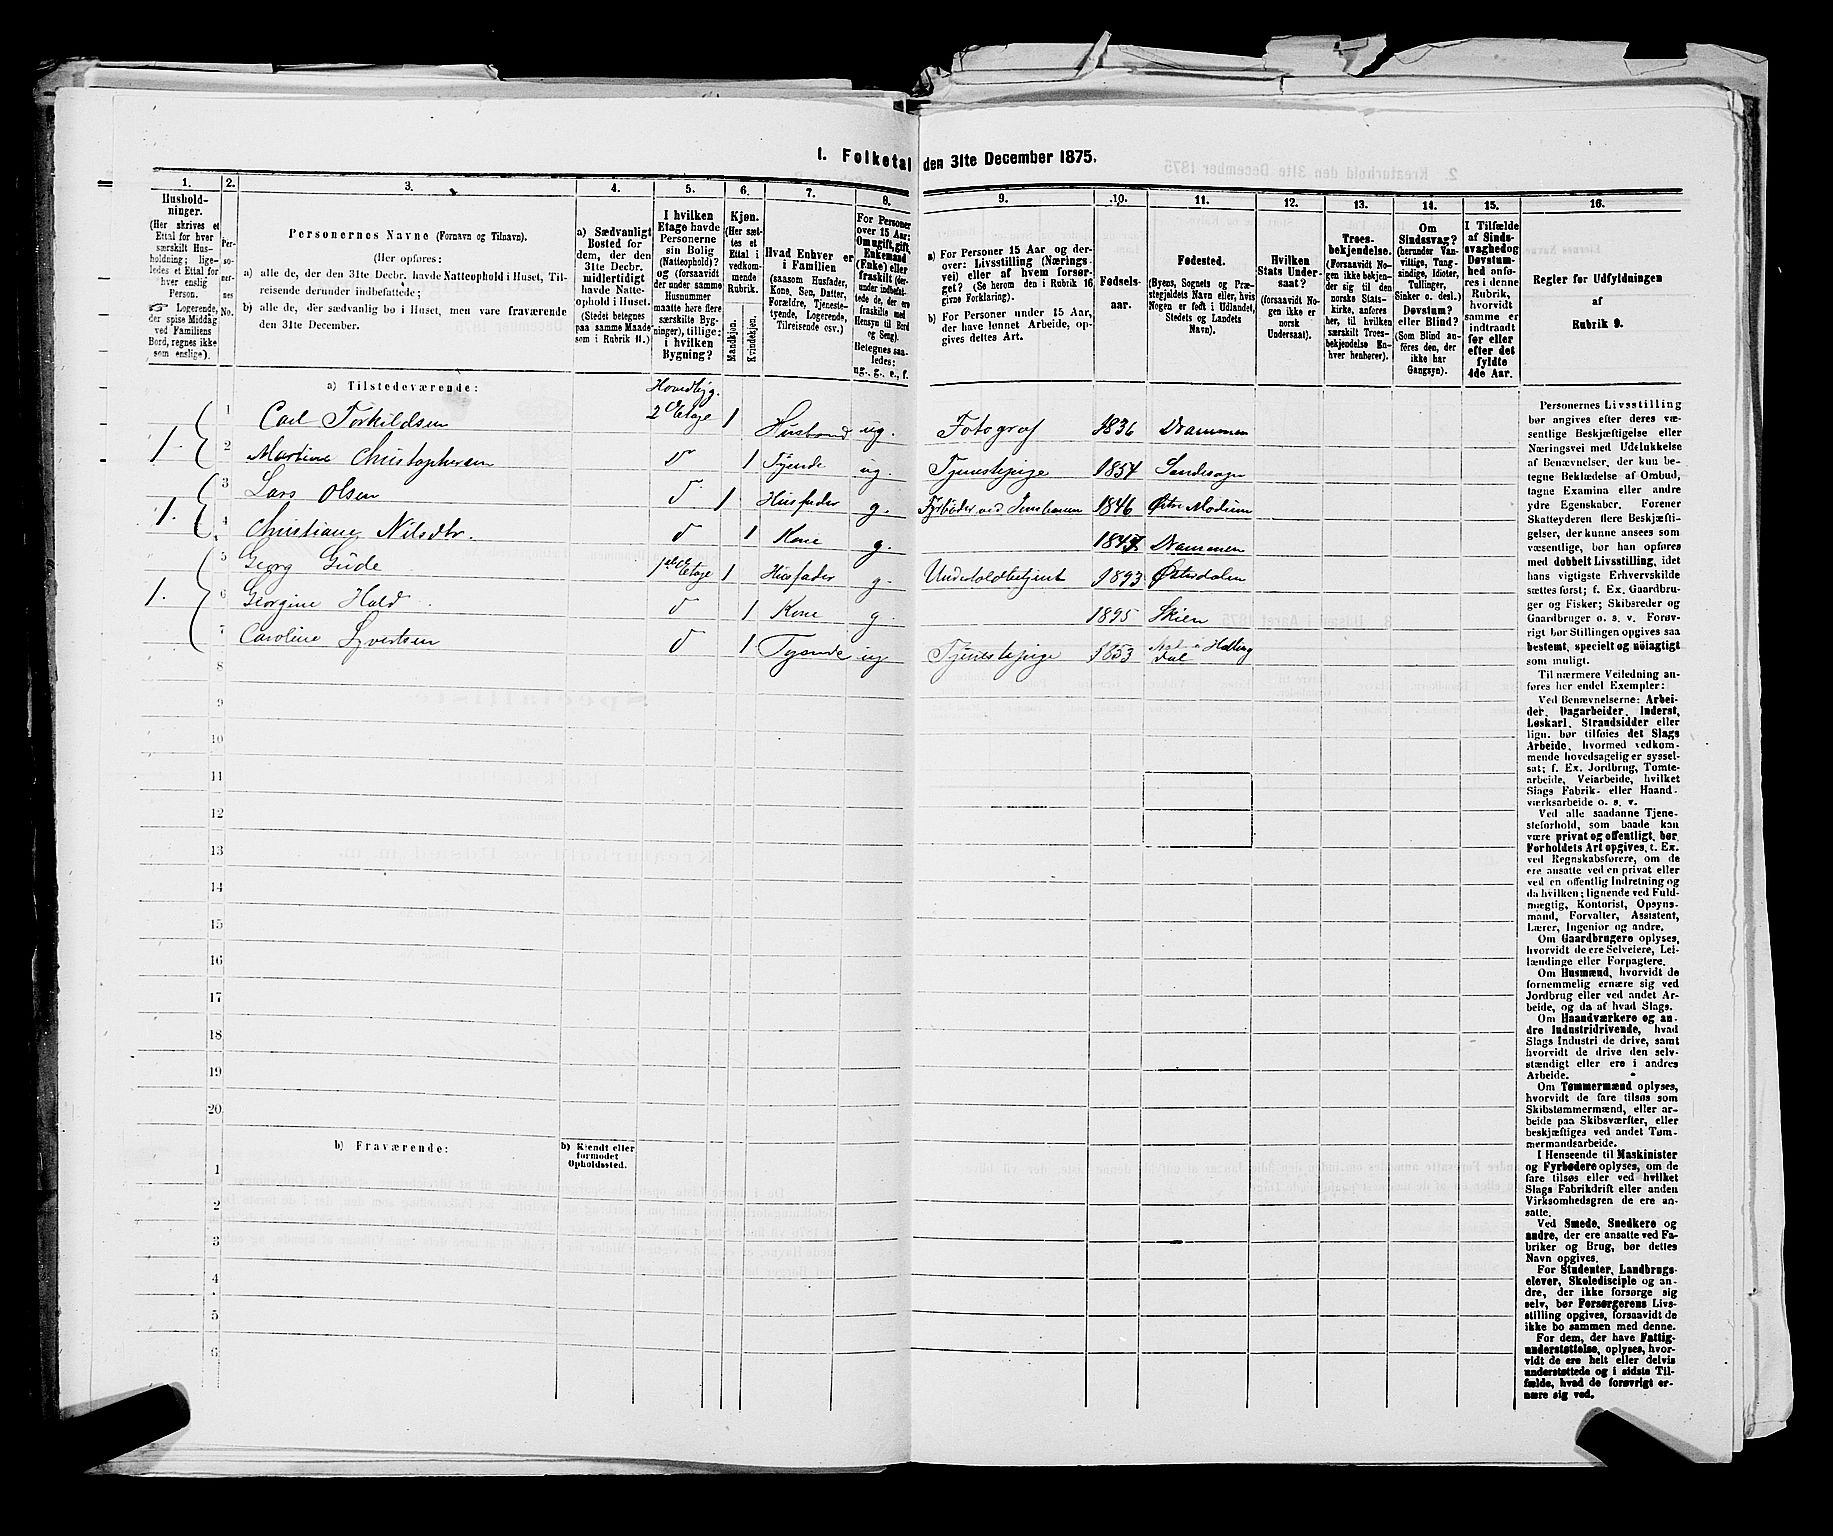 I. Folketal den 31te December 1875.
1. 2. 3. 4. 5. 6. 7. 8. 9. 10. 11. 12. 13. 14. 15. 16.
Husholdninger.
(Her skrives et
Ettal for hver
særskilt Husholdning;
ligeledes
et Ettal for
hver enslig
Person.
☞ Logerende,
der spise Middag
ved Familiens
Bord, regnes ikke
som enslige).
Personernes
No.
Personernes Navne (Fornavn og Tilnavn).
(Her opføres:
a) alle de, der den 31te Decbr. havde Natteophold i Huset, Tilreisende
derunder indbefattede;
b) alle de, der sædvanlig bo i Huset, men vare fraværende
den 31te December.
a) Sædvanligt
Bosted for
dem, der den
31te Decbr.
midlertidigt
havde Natteophold
i Huset.
(Stedet betegnes
paa samme Maade
som i Rubrik 11.)
I hvilken
Etage havde
Personerne
sin Bolig
(Natteophold)?
og (forsaavidt
der under samme
Husnummer
maatte høre flere
særskilte Bygninger),
tillige:
i hvilken
Bygning?
Kjøn.
(Her sættes
et
Ettal i
vedkommende
Rubrik.
Mandkjøn.
Kvindekjøn.
Hvad Enhver er
i Familien
(saasom Husfader,
Kone, Søn, Datter,
Forældre, Tjenestetyende,
Logerende,
Tilreisende osv.)
For Personer
over 15 Aar:
Om ugift, gift,
Enkemand
(Enke) eller
fraskilt (derunder
indbefattede
de, der ere
fraskilte med
Hensyn til Bord
og Seng).
Betegnes saaledes:
ug., g., e., f.
a) For Personer 15 Aar og derover:
Livsstilling (Næringsvei)
eller af hvem forsørget?
(Se herom den i Rubrik 16
givne Forklaring).
b) For Personer under 15 Aar,
der have lønnet Arbeide, opgives
dettes Art.
Fødselsaar.
Fødested.
(Byens, Sognets og Præstegjeldets
Navn eller, hvis
Nogen er født i Udlandet,
Stedets og Landets
Navn).
Hvilken
Stats Undersaat?
(forsaavidt Nogen
ikke er
norsk
Undersaat).
Troesbekjendelse.
(Forsaavidt Nogen
ikke bekjender
sig til den
norske Statskirke,
anføres
her, til hvilken
særskilt Troesbekjendelse
Enhver
henhører).
Om
Sindssvag?
(herunder Vanvittige,
Tungsindige,
Idioter,
Tullinger,
Sinker o. desl.)
Døvstum?
eller Blind?
(Som Blind anføres
den, der
ikke har
Gangsyn).
I Tilfælde
af Sindssvaghed
og
Døvstumhed
anføres
i denne
Rubrik,
hvorvidt
samme er
indtraadt
før eller
efter det
fyldte
4de Aar.
Regler for Udfyldningen
af
Rubrik 9.
a) Tilstedeværende:
Hovedbyg.
1 Carl Torkildsen 2 Etage 1 Husbond ug. Fotograf 1836 Drammen
1. 2 Martine Christophersen d 1 Tyende ug. Tjenestepige 1854 Sandesogn
3 Lars Olsen d 1 Husfader g. Fyrbøder ved 1846 Østre Modum
1. 4 Christiane Nilsdtr. d 1 Kone g. Drammen
5 Georg Güde 1ste Etage 1 Husfader g. Underfoldbetjent 1893 Østerdalen
1. 6 Georgine Hald d 1 Kone g. 1895 Skien
7 Caroline Syvertsen d 1 Tyende ug Tjenestepige 1853 Hallingdal
8
9
10
11
12
13
14
15
16
17
18
19
20
b) Fraværende:
b) Kjendt eller
formodet
Opholdssted.
1
2
3
4
5
6
Personernes Livsstilling
bør angives efter deres væsentlige
Beskjæftigelse eller
Næringsvei med Udelukkelse
af Benævnelser, der kun betegne
Beklædelse af Ombud,
tagne Examina eller andre
ydre Egenskaber. Forener
Skatteyderen flere Beskjæftigelser,
der kunne ansees som
væsentlige, bør han opføres
med dobbelt Livsstilling, idet
hans vigtigste Erhvervskilde
sættes først; f. Ex. Gaardbruger
og Fisker; Skibsreder og
Gaardbruger o. s. v. Forøvrigt
bør Stillingen opgives saa
bestemt, specielt og nøiagtigt
som muligt.
Til nærmere Veiledning anføres
her endel Exempler:
Ved Benævnelserne: Arbeider,
Dagarbeider, Inderst,
Løskarl, Strandsidder eller
lign. bør tilføies det Slags
Arbeide, hvormed vedkommende
hovedsagelig er sysselsat;
f. Ex. Jordbrug, Tomtearbeide,
Veiarbeide, hvilket
Slags Fabrik- eller Haandværksarbeide
o. s. v.
Ved alle saadanne Tjenesteforhold,
som baade kan
være privat og offentligt, bør
Forholdets Art opgives, t. Ex.
ved Regnskabsførere, om de
ere ansatte ved en privat eller
ved en offentlig Indretning og
da hvilken; lignende ved Fuldmægtig,
Kontorist, Opsynsmand,
Forvalter, Assistent,
Lærer, Ingeniør og andre.
Om Gaardbrugere oplyses,
hvorvidt de ere Selveiere, Leilændinge
eller Forpagtere.
Om Husmænd, hvorvidt de
fornemmelig ernære sig ved
Jordbrug eller ved andet Arbeide,
og da af hvad Slags.
Om Haandværkere og andre
Industridrivende, hvad
Slags Industri de drive, samt
hvorvidt de drive den selvstændigt
eller ere i andres
Arbeide.
Om Tømmermænd oplyses,
hvorvidt de fare tilsøs som
Skibstømmermænd, eller arbeide
paa Skibsværfter, eller
beskjæftiges ved andet Tømmermandsarbeide.
I Henseende til Maskinister
og Fyrbødere oplyses, om de
fare tilsøs eller ved hvilket
Slags Fabrikdrift eller anden
Virksomhedsgren de ere ansatte.
Ved Smede, Snedkere og
andre, der ere ansatte ved Fabriker
og Brug, bør dettes
Navn opgives.
For Studenter, Landbrugselever,
Skoledisciple og andre,
der ikke forsørge sig
selv, bør Forsørgerens Livsstilling
opgives, forsaavidt de
ikke bo sammen med denne.
For dem, der have Fattigunderstøttelse,
oplyses, hvorvidt
de ere helt eller delvis
understøttede og i sidste Tilfælde,
hvad de forøvrigt ernære
sig ved.